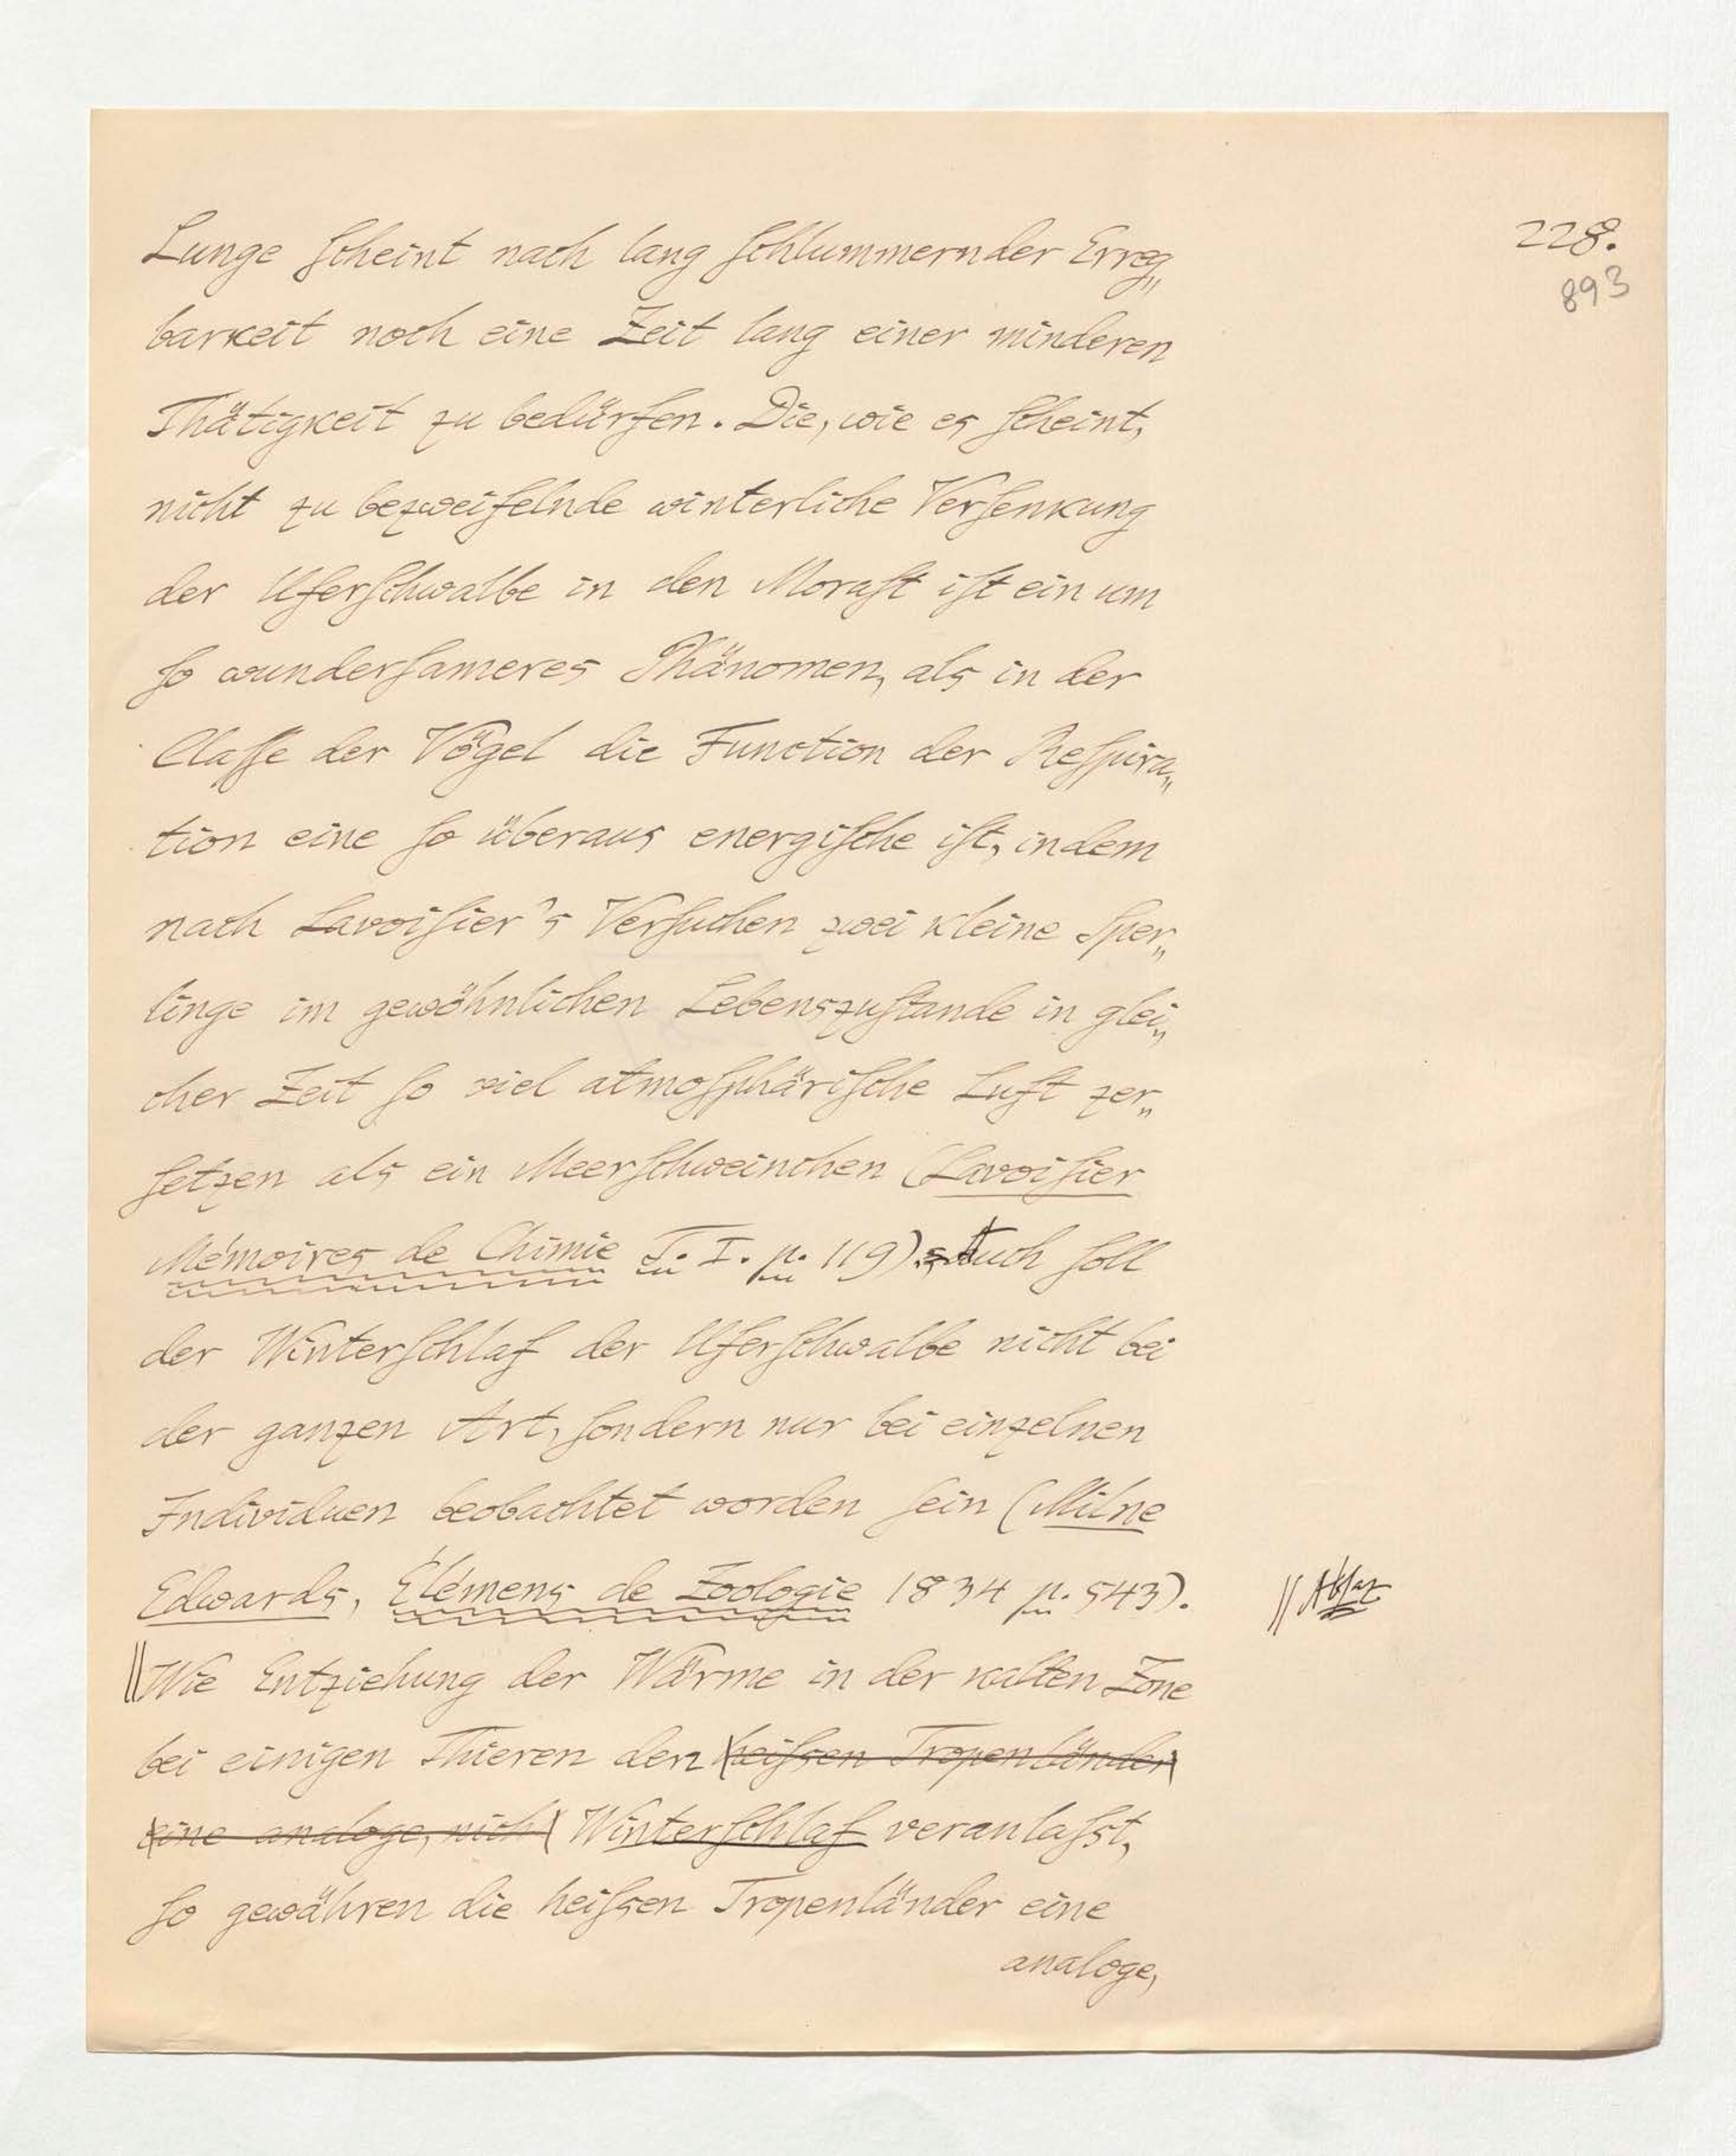 228.
893
Lunge scheint nach lang schlummernder Erreg„
barkeit noch eine Zeit lang einer minderen
Thätigkeit zu bedürfen. Die, wie es scheint,
nicht zu bezweifelnde winterliche Versenkung
der Uferschwalbe in den Morast ist ein um
so wundersameres Phänomen, als in der
Classe der Vögel die Function der Respira„
tion eine so überaus energische ist, indem
nach Lavoisier's Versuchen zwei kleine Sper„
linge im gewöhnlichen Lebenszustande in glei„
cher Zeit so viel atmosphärische Luft zer„
setzen als ein Meerschweinchen (Lavoisier
Mémoires de Chimie T. I. p. 119). Auch soll
der Winterschlaf der Uferschwalbe nicht bei
der ganzen Art, sondern nur bei einzelnen
Individuen beobachtet worden sein (Milne
Edwards, Élémens de Zoologie 1834 p. 543).
|| Absaz
||Wie Entziehung der Wärme in der kalten Zone
bei einigen Thieren den heissen Tropenländer
eine analoge, nich Winterschlaf veranlasst,
so gewähren die heissen Tropenländer eine
analoge,